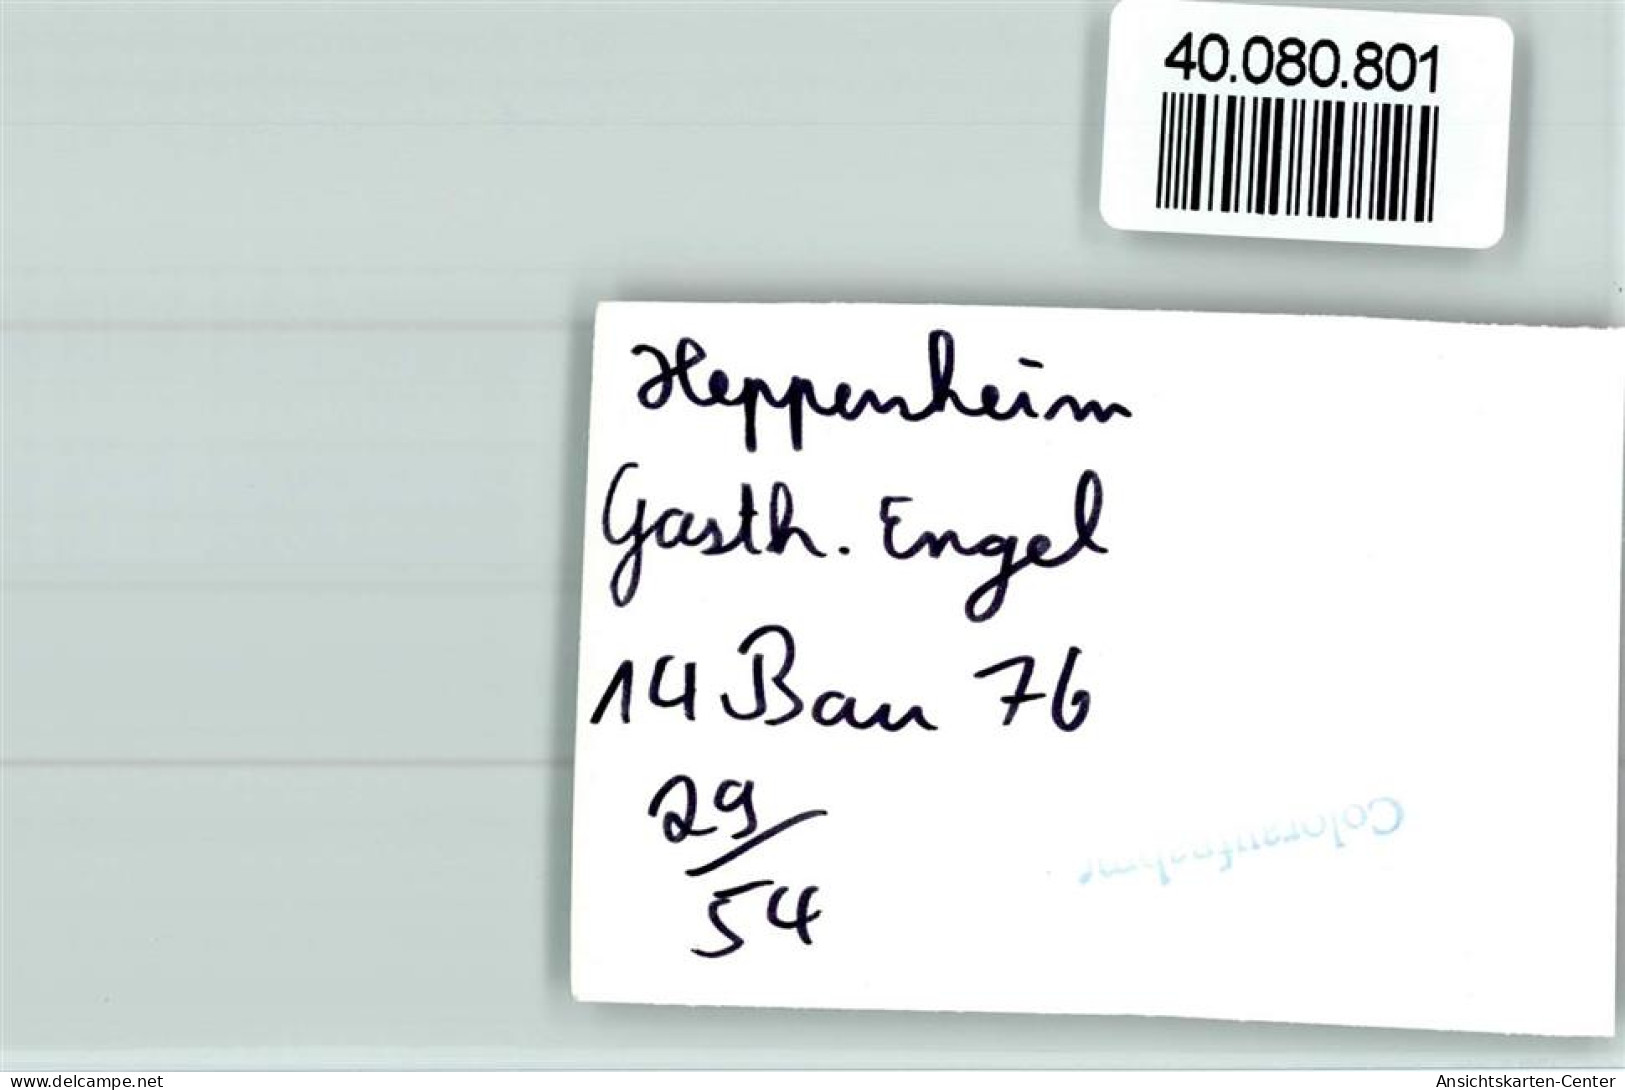 40.080.801
Heppenheim
Gasth. Engel
14 Bau 76
29/
54
Coloraufnahme
www.delcampe.net
Ansichtskarten-Center